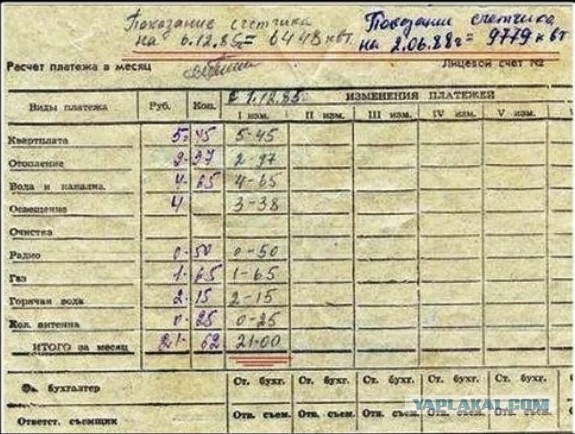 Показание счетчика Показании счетчика
на 6.12.85г= 6448 квт. на 2.06.88г= 9779 квт
Расчет платежа в месяц Лицевой счет №
Виды платежа Руб. Коп. с 1.12.85 ИЗМЕНЕНИЯ ПЛАТЕЖЕЙ
I изм. II изм. III изм. IV изм. V изм.
Квартплата 5-45 5-45
Отопление 2-97 2-97
Вода и канализ. 4-65 4-65
Освещение 4 3-38
Очистка
Радио 0-50 0-50
Газ 1-65 1-65
Горячая вода 2-15 2-15
Кол. антенна 0-25 0-25
ИТОГО за месяц 21-62 21-00
бухгалтер Ст. бухг. Ст. бухг. Ст. бухг. Ст. бухг. Ст. бухг. Ст. бухг.
Ответст. съемщик Отв. съем. Отв. съем. Отв. съем. Отв. съем. Отв. съем.
YAPLAKAL.COM